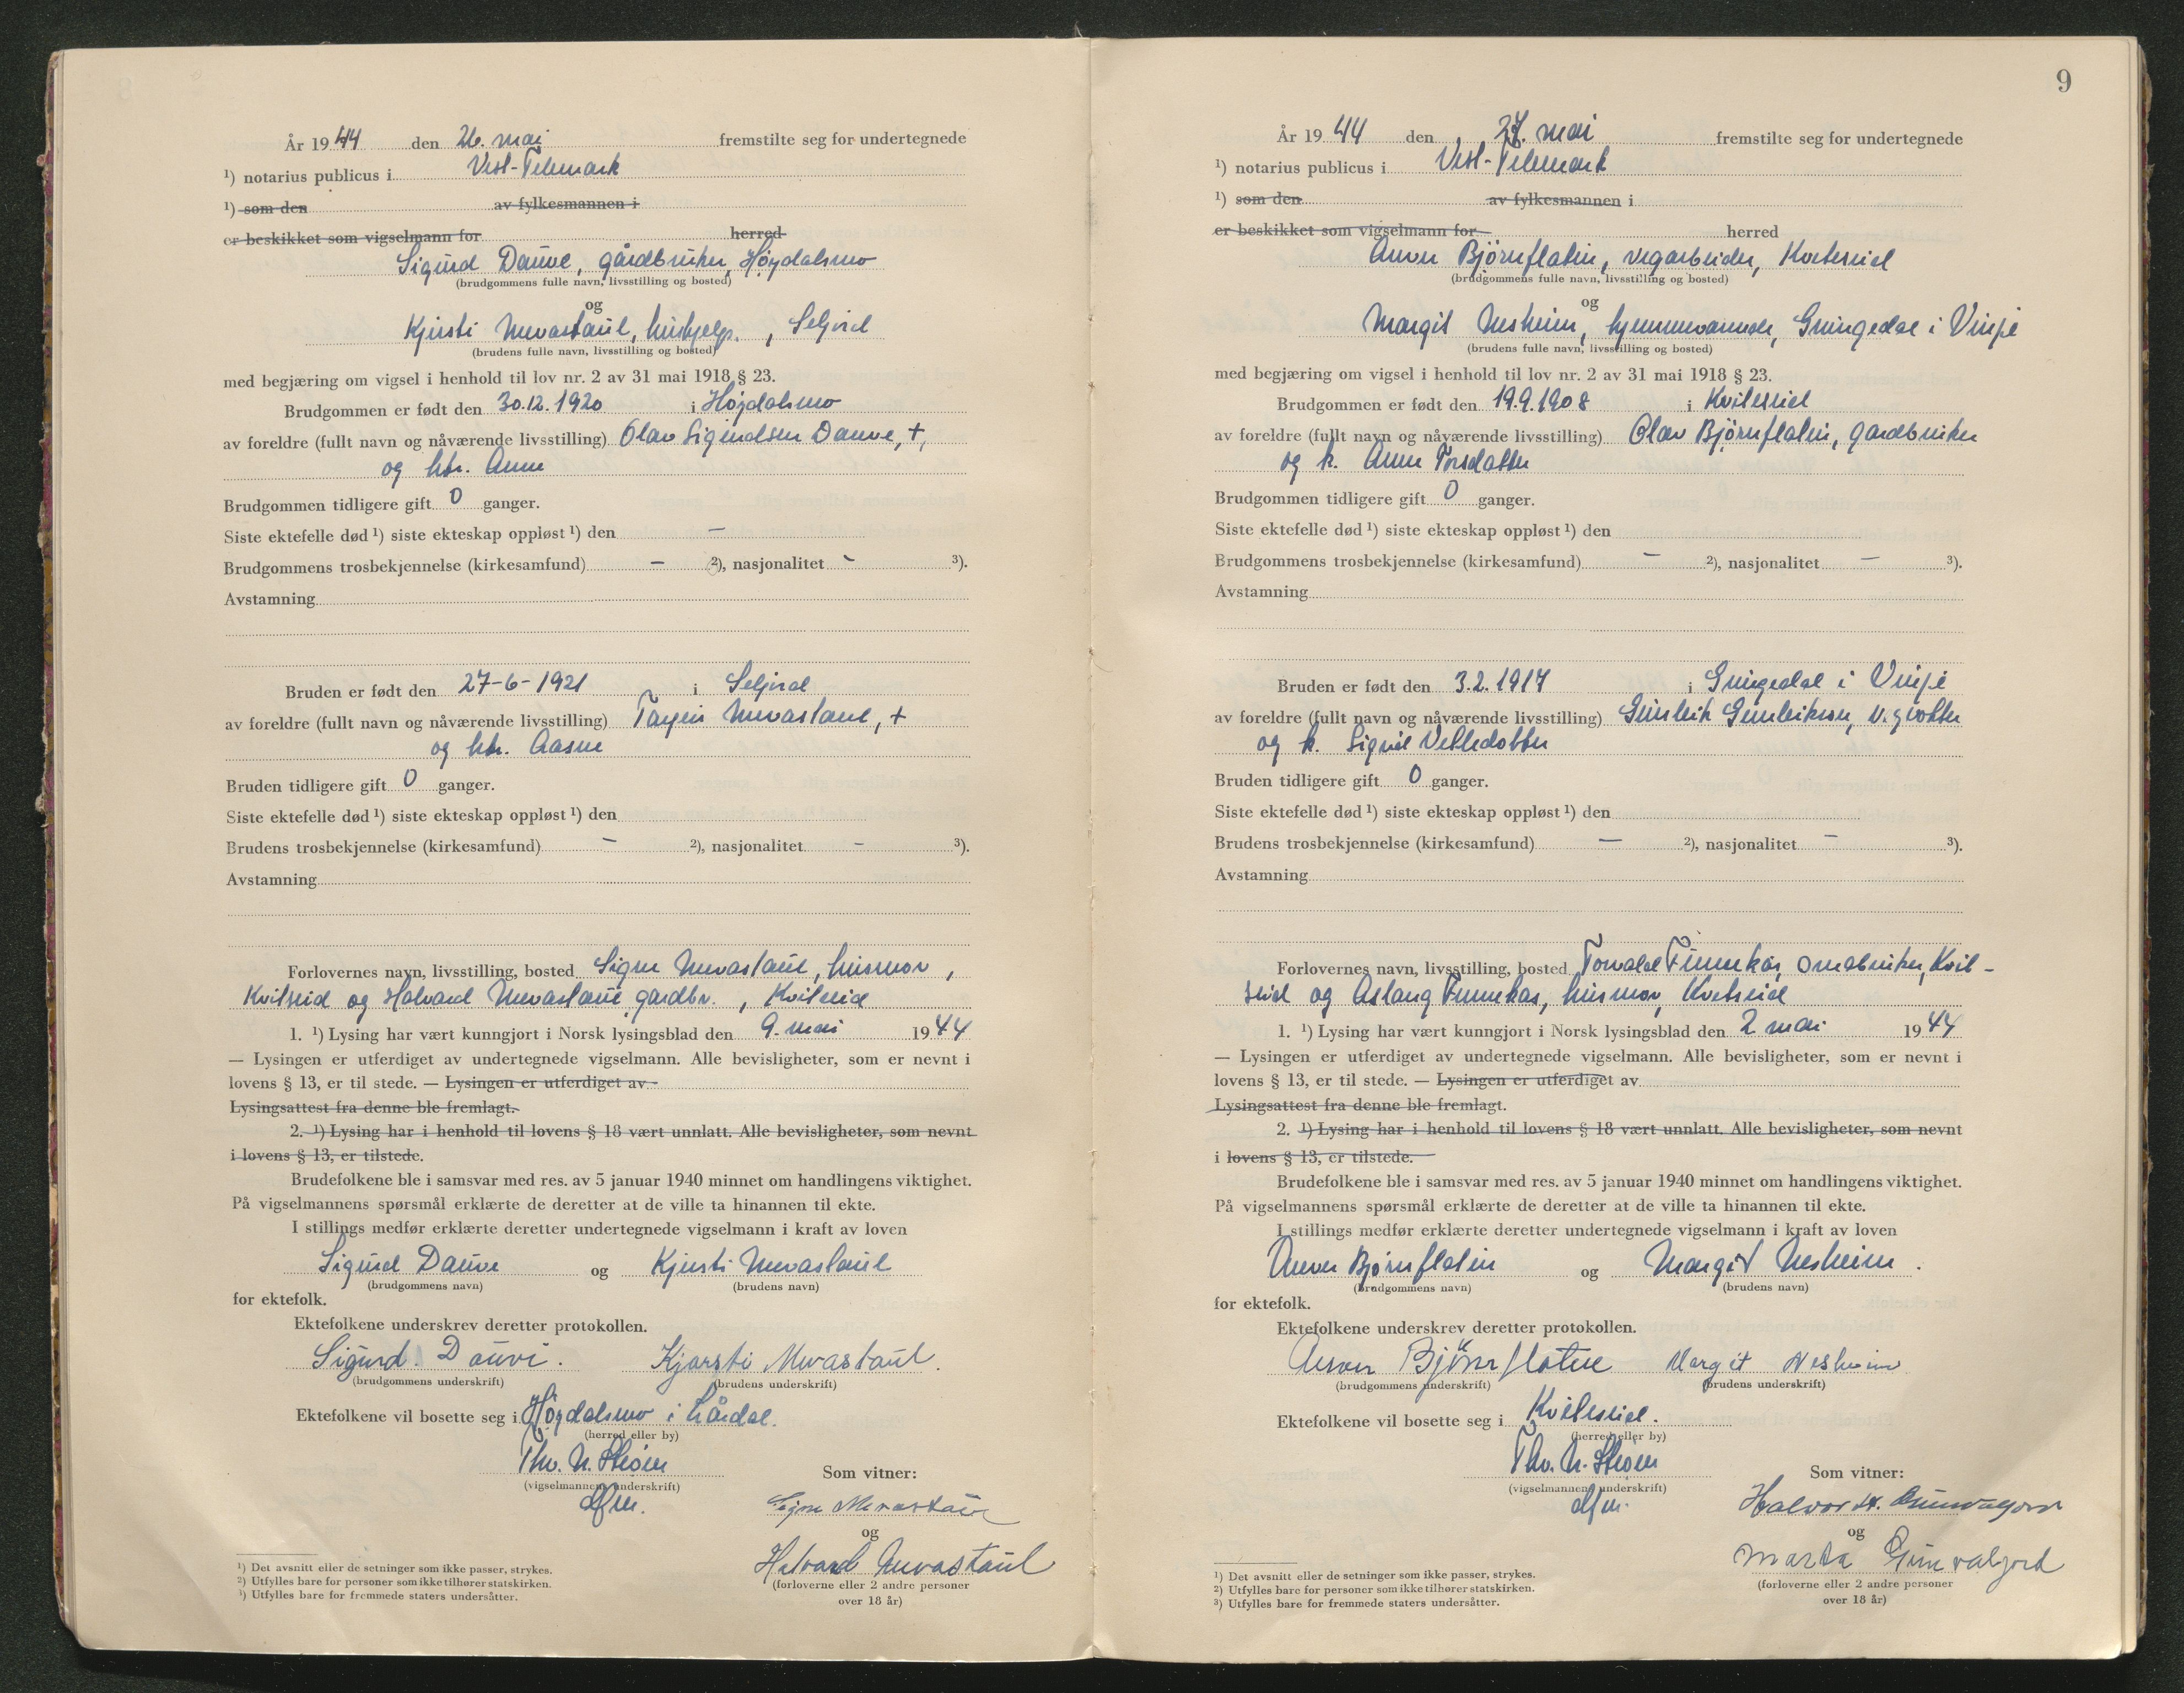 År 1944 den 26. mai fremstilte seg for undertegnede
¹) notarius publicus i Vest-Telemark
¹) som den av fylkesmannen i
er beskikket som vigselmann for herred
Sigurd Dauve, gårdbruker, Høydalsmo
(brudgommens fulle navn, livsstilling og bosted)
og
Kjersti Mevastaul, hushjelp., Seljord
(brudens fulle navn, livsstilling og bosted)
med begjæring om vigsel i henhold til lov nr. 2 av 31 mai 1918 § 23.
Brudgommen er født den 30.12.1920 i Høydalsmo
av foreldre (fullt navn og nåværende livsstilling) Olav Sigurdsen Dauve, +,
og htr. Anne
Brudgommen tidligere gift 0 ganger.
Siste ektefelle død ¹) siste ekteskap oppløst ¹) den –
Brudgommens trosbekjennelse (kirkesamfund) – ²), nasjonalitet - ³).
Avstamning
Bruden er født den 27-6-1921 i Seljord
av foreldre (fullt navn og nåværende livsstilling) Tarjei Mevastaul, +
og htr. Aasne
Bruden tidligere gift 0 ganger.
Siste ektefelle død ¹) siste ekteskap oppløst ¹) den
Brudens trosbekjennelse (kirkesamfund) – ²), nasjonalitet – ³).
Avstamning
Forlovernes navn, livsstilling, bosted Signe Mevastaul, husmor,
Kviteseid og Halvard Mevastaul gardbr., Kviteseid
1. ¹) Lysing har vært kunngjort i Norsk lysingsblad den 9. mai 1944
— Lysingen er utferdiget av undertegnede vigselmann. Alle bevisligheter, som er nevnt i
lovens § 13, er til stede. — Lysingen er utferdiget av
Lysingsattest fra denne ble fremlagt.
2. ¹) Lysing har i henhold til lovens § 18 vært unnlatt. Alle bevisligheter, som nevnt
i lovens § 13, er tilstede.
Brudefolkene ble i samsvar med res. av 5 januar 1940 minnet om handlingens viktighet.
På vigselmannens spørsmål erklærte de deretter at de ville ta hinannen til ekte.
I stillings medfør erklærte deretter undertegnede vigselmann i kraft av loven
Sigurd Dauve og Kjersti Mevastaul
(brudgommens navn) (brudens navn)
for ektefolk.
Ektefolkene underskrev deretter protokollen.
Sigurd Dauvi. Kjersti Mevastaul.
(brudgommens underskrift) (brudens underskrift)
Ektefolkene vil bosette seg i Høydalsmo i Lårdal.
(herred eller by)
Thv. N. Steen
(vigselmannens underskrift)
Som vitner:
Signe Mevastaul
og
Halvard Mevastaul
(forloverne eller 2 andre personer
over 18 år)
¹) Det avsnitt eller de setninger som ikke passer, strykes.
²) Utfylles bare for personer som ikke tilhører statskirken.
³) Utfylles bare for fremmede staters undersåtter.
9
År 1944 den 27. mai fremstilte seg for undertegnede
¹) notarius publicus i Vest-Telemark
¹) som den av fylkesmannen i
er beskikket som vigselmann for herred
Anver Björnflatin, vegarbeider, Kviteseid
(brudgommens fulle navn, livsstilling og bosted)
og
Margit Nesheim, hjemmeværende, Grungedal i Vinje
(brudens fulle navn, livsstilling og bosted)
med begjæring om vigsel i henhold til lov nr. 2 av 31 mai 1918 § 23.
Brudgommen er født den 19.9.1908 i Kviteseid
av foreldre (fullt navn og nåværende livsstilling) Olav Björnflatin, gardbruker
og k. Anne Torsdatter
Brudgommen tidligere gift 0 ganger.
Siste ektefelle død ¹) siste ekteskap oppløst ¹) den
Brudgommens trosbekjennelse (kirkesamfund) – ²), nasjonalitet – ³).
Avstamning
Bruden er født den 3.2.1917 i Grungedal i Vinje
av foreldre (fullt navn og nåværende livsstilling) Gunleik Gunleiksen,
og k. Sigrid Vetledotter
Bruden tidligere gift 0 ganger.
Siste ektefelle død ¹) siste ekteskap oppløst ¹) den
Brudens trosbekjennelse (kirkesamfund) – ²), nasjonalitet – ³).
Avstamning
Forlovernes navn, livsstilling, bosted Torvald Finnekås, småbruker, Kvit-
seid og Aslaug Finnekås, husmor, Kviteseid
1. ¹) Lysing har vært kunngjort i Norsk lysingsblad den 2 mai 1944
— Lysingen er utferdiget av undertegnede vigselmann. Alle bevisligheter, som er nevnt i
lovens § 13, er til stede. — Lysingen er utferdiget av
Lysingsattest fra denne ble fremlagt.
2. ¹) Lysing har i henhold til lovens § 18 vært unnlatt. Alle bevisligheter, som nevnt
i lovens § 13, er tilstede.
Brudefolkene ble i samsvar med res. av 5 januar 1940 minnet om handlingens viktighet.
På vigselmannens spørsmål erklærte de deretter at de ville ta hinannen til ekte.
I stillings medfør erklærte deretter undertegnede vigselmann i kraft av loven
Anver Bjørnflatin og Margit Nesheim.
(brudgommens navn) (brudens navn)
for ektefolk.
Ektefolkene underskrev deretter protokollen.
Anver Bjönnflaten Margit Nesheim
(brudgommens underskrift) (brudens underskrift)
Ektefolkene vil bosette seg i Kviteseid.
(herred eller by)
Thv. N. Steen
(vigselmannens underskrift)
Som vitner:
Halvor H.
og
Marta Gunvaljord
(forloverne eller 2 andre personer
over 18 år)
¹) Det avsnitt eller de setninger som ikke passer, strykes.
²) Utfylles bare for personer som ikke tilhører statskirken.
³) Utfylles bare for fremmede staters undersåtter.